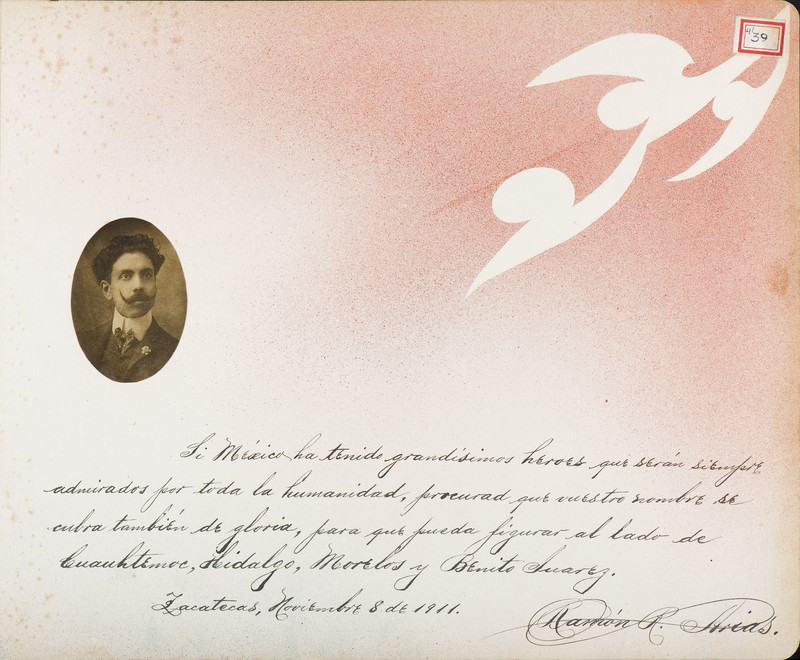 4/39
Si México ha tenido grandísimos heroes que serán siempre
admirados por toda la humanidad, procurad que vuestro nombre se
cubra también de gloria, para que pueda figurar al lado de
Cuauhtemoc, Hidalgo, Morelos y Benito Juarez.
Zacatecas, Noviembre 8 de 1911.
Ramón R. Arias.